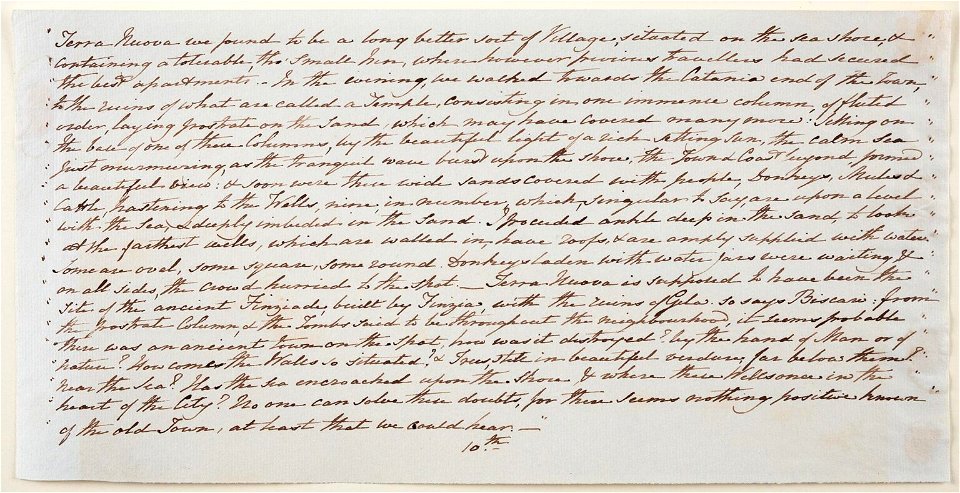 Terra Nuova we found to be a long better sort of Village, situated on the sea shore, &
containing a tolerable, tho' small Inn, where however previous travellers had secured
the best apartments. - In the evening, we walked towards the Catania end of the Town,
to the ruins of what are called a Temple, consisting in one immence column, of fluted
order, laying prostrate on the sand, which may have covered many more: sitting on
the base of one of these Columns, by the beautiful light of a rich setting sun, the calm sea
just murmuring, as the tranquil wave burst upon the shore, the Town & Coast beyond, formed
a beautiful view: & soon were these wide sands covered with people, Donkeys, Mules &
Cattle, hastening to the Wells, nine, in number, which singular to say are upon a level
with the sea, & deeply imbided in the sand. I proceeded ankle deep in the sand, to look
at the farthest wells, which are walled in, have roofs, & are amply supplied with water.
Some are oval, some square, some round. Donkeys laden with water jars were waiting, &
on all sides, the crowd hurried to the spot. — Terra Nuova is supposed to have been the
site of the ancient Finziade, built by Finzia, with the ruins of Gela. so says Biscari: from
the prostrate Column & the Tombs said to be throughout the neighbourhood, it seems probable
there was an ancient town on the spot, how was it destroyed? by the hand of Man or of
nature? How comes the Wells so situated? & Trees, still in beautiful verdure, far below them?
near the Sea? Has the sea encroached upon the shore & where these Wells once in the
heart of the City? No one can solve these doubts, for there seems nothing positive known
of the old Town, at least that we could hear. —
10th